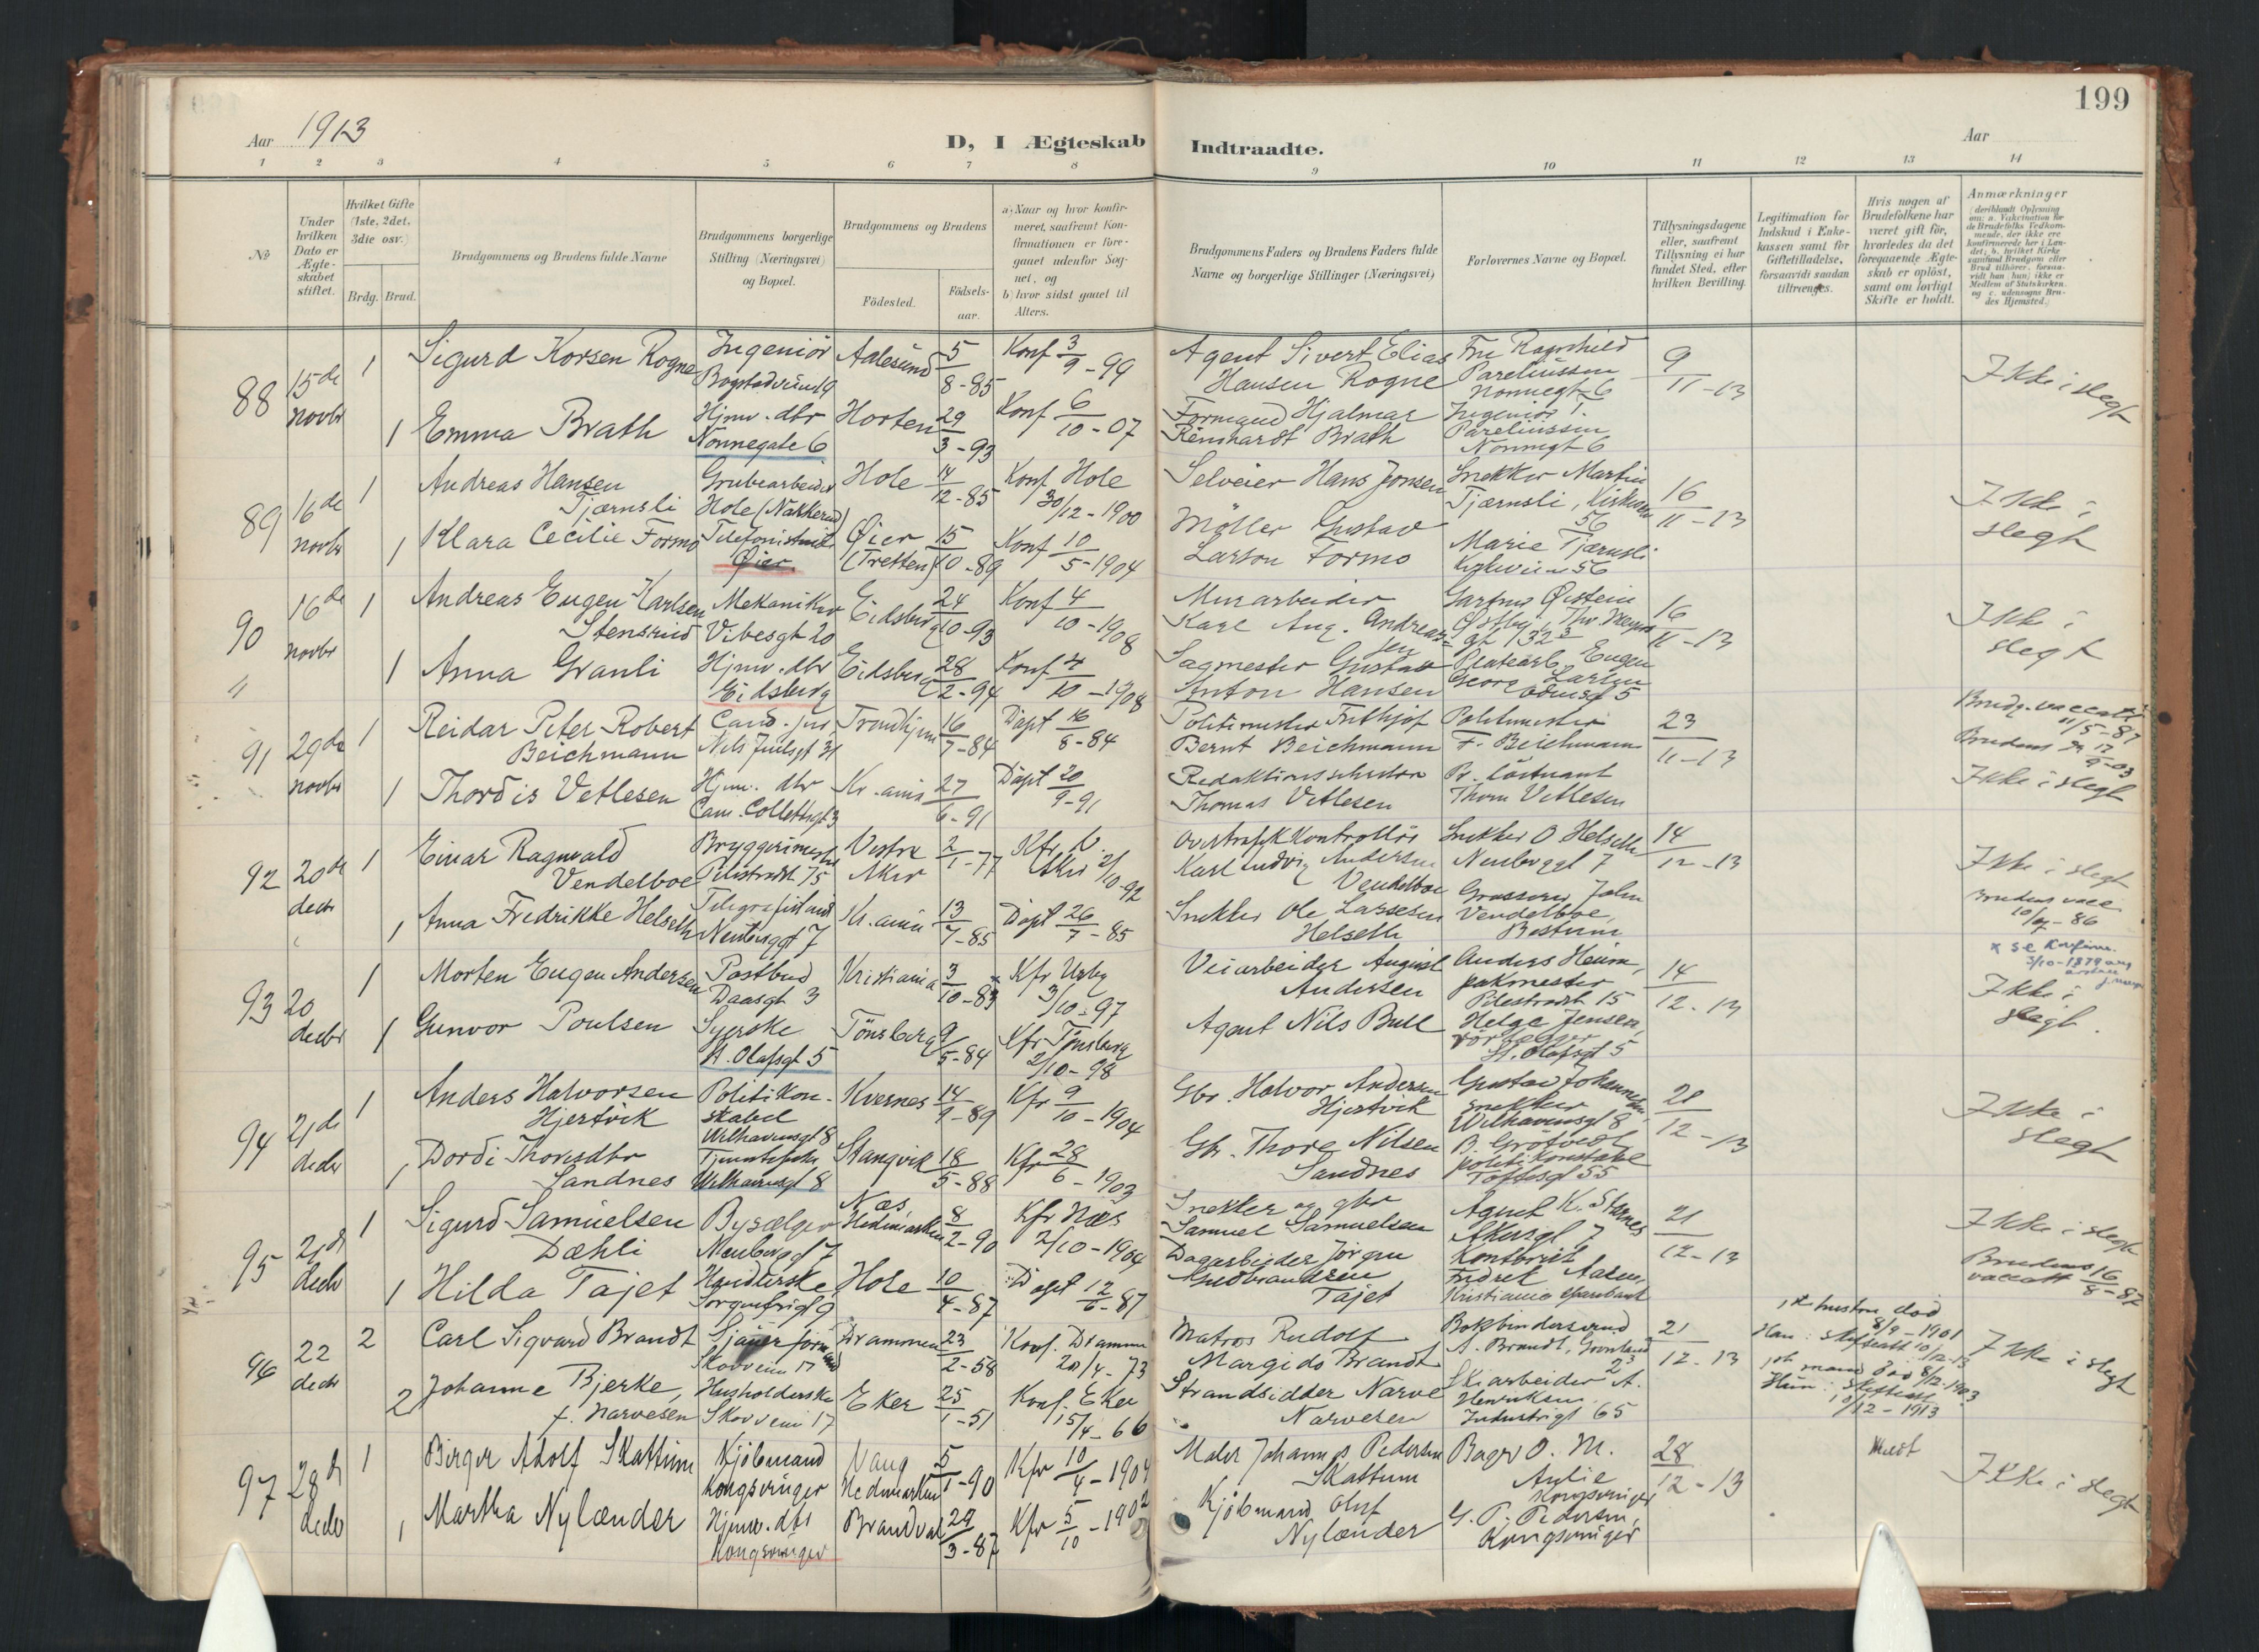 199
Aar 1913
D, I Ægteskab Indtraadte.
Aar
1 2 3 4 5 6 7 8 9 10 11 12 13 14
No
Under hvilken Dato er Ægteskabet stiftet.
Hvilket Gifte (1ste, 2det, 3die osv.)
Brdg. Brud.
Brudgommens og Brudens fulde Navne
Brudgommens borgerlige Stilling (Næringsvei) og Bopæl.
Brudgommens og Brudens
Fødested.
Fødselsaar.
a) Naar og hvor konfirmeret, saafremt Konfirmationen er foregaaet udenfor Sognet, og
b) hvor sidst gaaet til Alters.
Brudgommens Faders og Brudens Faders fulde Navne og borgerlige Stillinger (Næringsvei)
Forlovernes Navne og Bopæl.
Tillysningsdagene eller, saafremt Tillysning ei har fundet Sted, efter hvilken Bevilling.
Legitimation for Indskud i Enkekassen samt for Giftetilladelse, forsaavidt saadan tiltrænges.
Hvis nogen af Brudefolkene har været gift før, hvorledes da det foregaaende Ægteskab er opløst, samt om lovligt Skifte er holdt.
Anmærkninger
88
15de novbr
1
Sigurd Korsen Rogne
Ingeniör
Bogstadveien 19
Aalesund
5/8-85
Konf 3/9-99
Agent Sivert Elias Hansen Rogne
Fru Ragnhild Pareliussen
Nonnegt 6
9/11-13
Ikke i slegt
1
Emma Brath
Hjmv. dtr
Nonnegate 6
Horten
29/3-93
Konf 6/10-07
Formand Hjalmar Reinhardt Brath
Ingeniör T. Pareliussen
Nonnegt 6
89
16de novbr
1
Andreas Hansen Tjærnsli
Grubearbeider
Hole (Nakkerud)
Hole
14/12-85
Konf Hole 30/12-1900
Selveier Hans Jonsen
Snekker Martin Tjærnsli, Kirkeveien 56
16/11-13
Ikke i slegt
1
Klara Cecilie Formo
Telefonistinde
Øier
Øier (Tretten)
15/10-89
Konf 10/5-1904
Möller Gustav Larson Formo
Marie Tjærnsli
Kirkeveien 56
90
16de novbr
1
Andreas Eugen Karlsen Stensrud
Mekaniker
Vibesgt 20
Eidsberg
24/10-93
Konf 4/10-1908
Murarbeider Karl Aug. Andreassen
Gartner Øistein Østby, Thv. Meyersgt
16/11-13
Ikke i slegt
1
Anna Granli
Hjmv. dtr
Eidsberg
Eidsberg
28/2-94
Konf 4/10-1908
Sagmester Gustav Anton Hansen
Eugen Georg Larsen
91
29de novbr
1
Reidar Peter Robert Beichmann
Cand. jur.
Nils Juulsgt 31
Trondhjem
16/7-84
Døpt 16/8-84
Politimester Frithjof Bernt Beichmann
Politimester F. Beichmann
23/11-13
Brudg. vaccatt 11/5-87
Ikke i slegt
1
Thordis Vetlesen
Hjmv. dtr
Cam. Collettsgt 3
Kr.ania
27/6-91
Døpt 20/9-91
Redaktionssekretær Thomas Vetlesen
Pr. löitnant Thom Vetlesen
92
20de decbr
1
Einar Ragnvald Vendelboe
Bryggerimester
Pilestrædet 75
Vestre Aker
2/1-77
Kfr V. Aker 2/10-92
Karl Ludvig Andersen Vendelboe
Snekker O Helseth
Neuberggt 7
14/12-13
Ikke i slegt
1
Anna Fredrikke Helseth
Telegrafistinde
Neuberggt 7
Kr.ania
13/7-85
Døpt 26/7-85
Snekker Ole Larsesen Helseth
Grosserer John Vendelboe,
Bestum
Brudens vacc.
93
20 decbr
1
Morten Eugen Andersen
Postbud
Daasgt 3
Kristiania
3/10-83
Kfr Urbg 3/10-97
Veiarbeider August Andersen
Anders Heim, pakmester
Pilestrædet 15
14/12-13
Ikke i slegt.
1
Gunvor Poulsen
Syerske
St. Olafsgt 5
Tönsberg
9/5-84
Kfr Tönsberg 2/10-98
Agent Nils Bull
Helge Jensen, rörlegger
St. Olafsgt 5
94
21de decbr
1
Anders Halvorsen Hjertvik
Politikonstabel
Welhavensgt 8
Kvernes
14/9-89
Kfr 9/10-1904
Gbr. Halvor Andersen Hjertvik
Gustav Johannesen, snekker
Welhavensgt 8
21/12-13
Ikke i slegt
1
Dordi Thoresdtr Sandnes
Welhavensgt 8
Stangvik
18/5-88
Kfr 28/6-1903
Gbr. Thore Nilsen Sandnes
politikonstabel
Toftesgt 55
95
21de decbr
1
Sigurd Samuelsen Dæhli
Bysælger
Neuberggt 7
Næs, Hedemarken
8/2-90
Kfr Næs 2/10-1904
Snekker og gbr Samuel Samuelsen
Agent K. Starnes
Akersgt 7
21/12-13
Ikke i slegt
1
Hilda Tajet
Handlerske
Sorgenfrigt 9
Hole
10/4-87
Døpt 12/6-87
Dagarbeider Jörgen Gudbrandsen Tajet
Kontorist Fredrik Aasen,
Kristiania Sparebank
Brudens vaccatt 16/8-87
96
22 decbr
2
Carl Sigvard Brandt
Sjauerformand
Skovveien 17
Drammen
23/2-58
Konf. Drammen 20/4-73
Matros Rudolf Margido Brandt
Bokbindersvend A. Brandt, Grønland
21/12-13
1ste hustru död 8/9-1901
Han: skifteatt 10/12-13
Ikke i slegt
2
Johanne Bjerke, f. Narvesen
Husholderske
Skovveien 17
Eker
25/1-51
Konf. Eker 15/4-66
Strandsidder Narve Narvesen
Skiarbeider A. Henriksen
Industrigt 65
1ste mand död 8/12-1903
Hun: skifteatt 10/12-1913
97
28de decbr
1
Birger Adolf Skattum
Kjöbmand
Kongsvinger
Vang Hedmarken
5/1-90
Kfr 10/4-1904
Maler Johannes Pedersen Skattum
Bager O. M. Aulie
Kongsvinger
28/12-13
Ikke i slegt
1
Martha Nylænder
Hjmv. dtr
Kongsvinger
Brandval
29/3-87
Kfr 5/10-1902
Kjöbmand Oluf Nylænder
G. P. Pedersen,
Kongsvinger